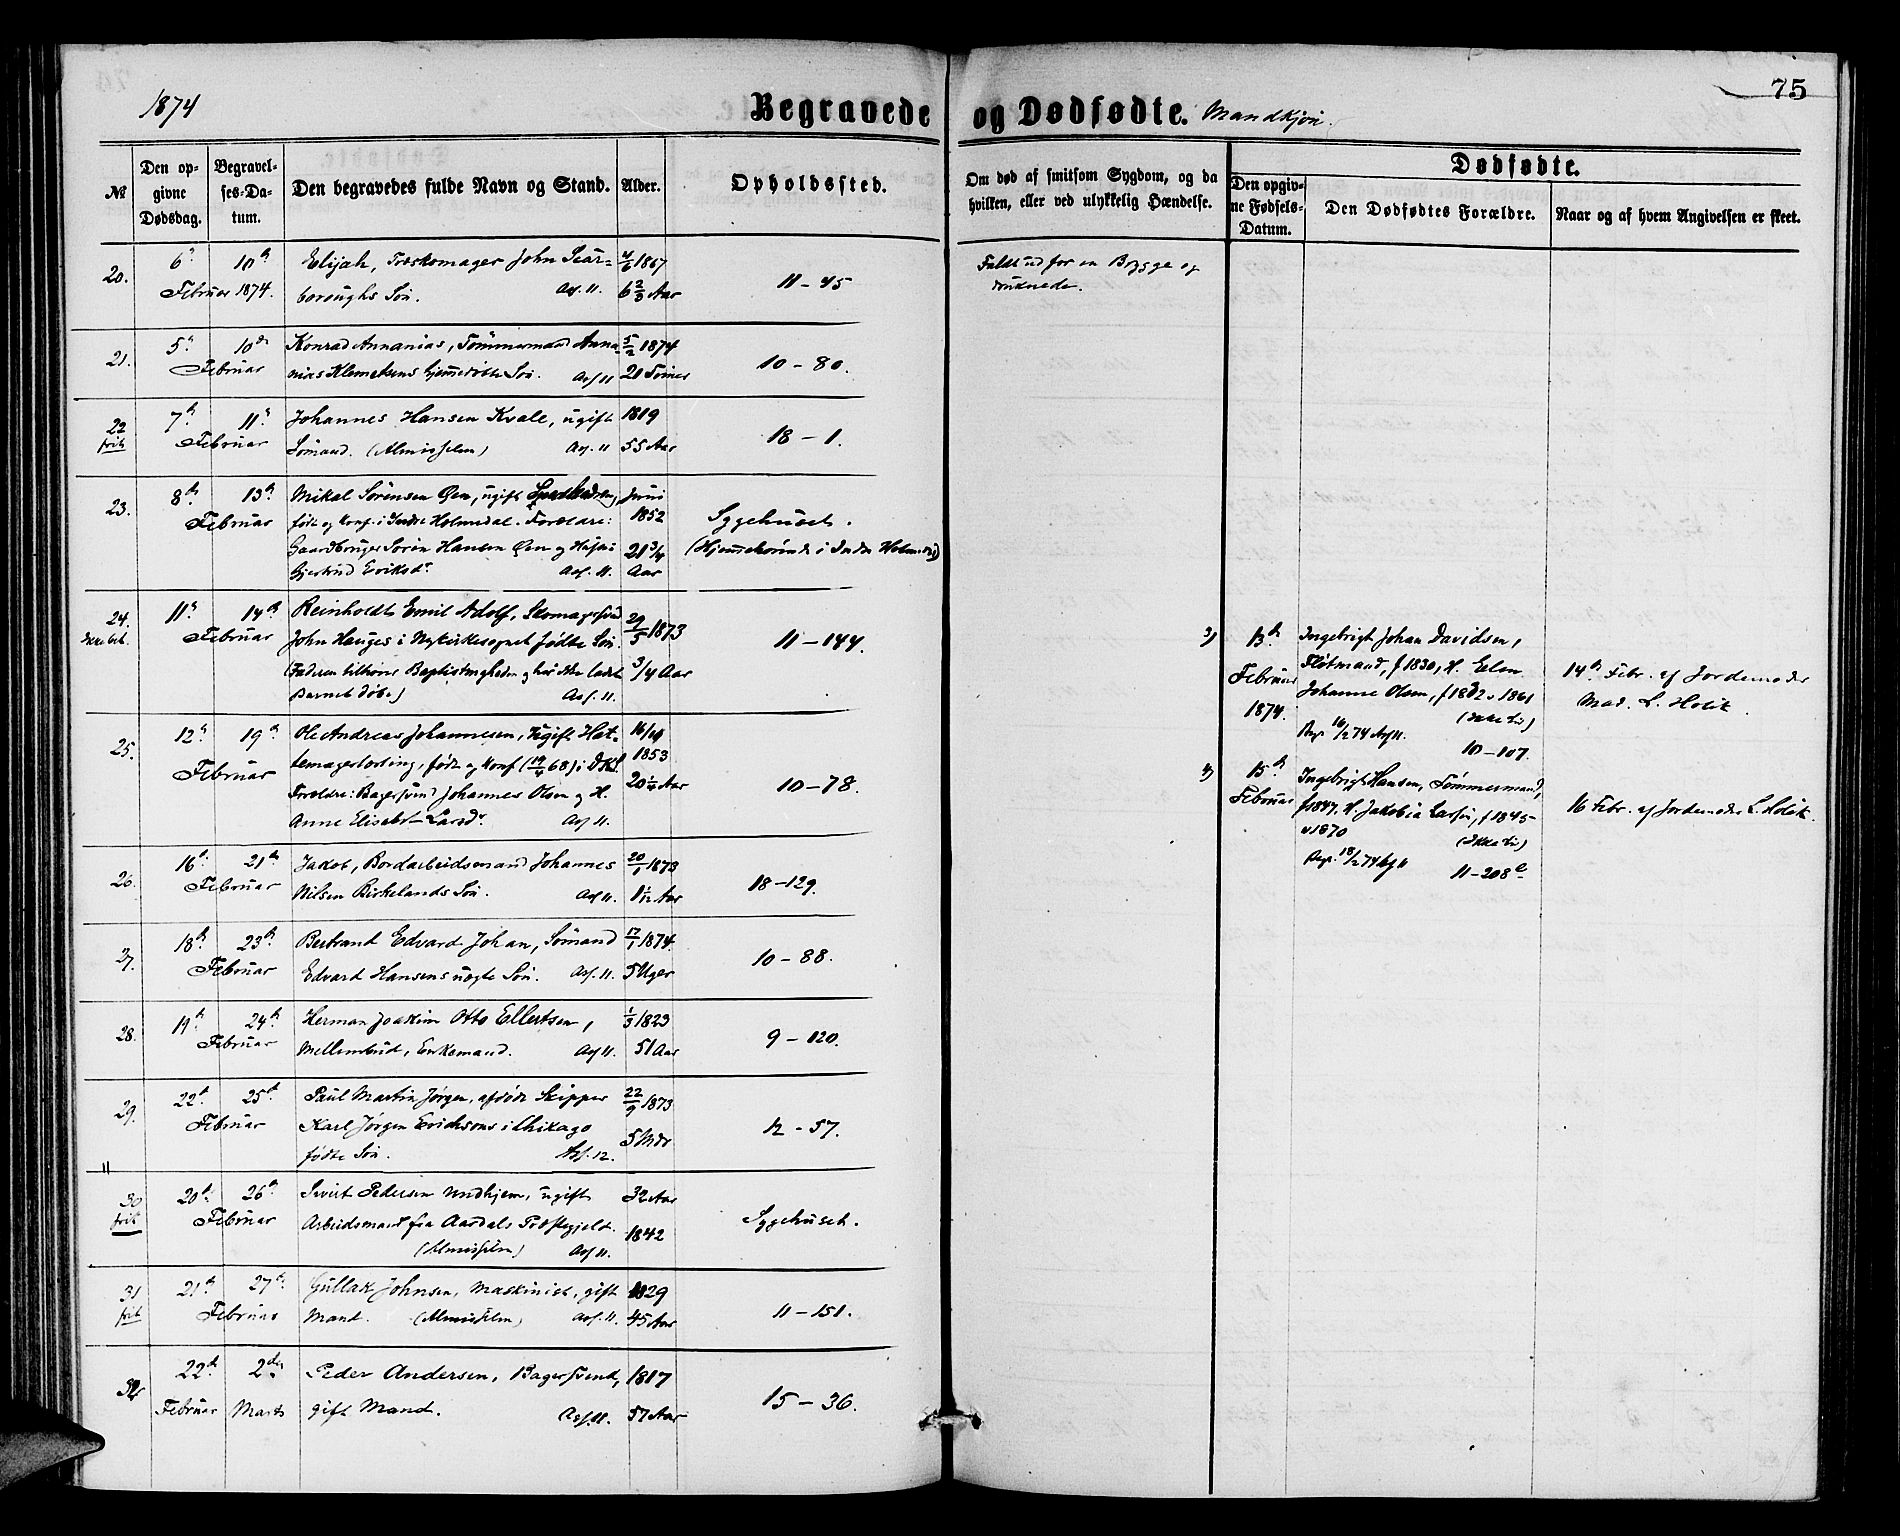 1874
Begravede og Dødfødte. Mandkjøn.
75
№
Den opgivne Dødsdag.
Begravelses-Datum.
Den begravedes fulde Navn og Stand.
Alder.
Opholdssted.
Om død af smitsom Sygdom, og da hvilken, eller ved ulykkelig Hændelse.
Dødfødte.
Den opgivne Fødsels-Datum.
Den Dødfødtes Forældre.
Naar og af hvem Angivelsen er skeet.
20. 6 10
Februar 1874.
Elijah, Træskomager John Scar-
boroughs Søn.
4/6 1867
6 2/3 Aar
11 – 45
Faldt ud for en Brygge og
druknede.
21. 5 10
Februar
Konrad Annanias, Tømmermand Anna-
nias Klemetsens hjemmedøbte Søn.
5/2 1874
21 Timer
10 – 80.
22 frit 7 11
Februar
Johannes Hansen Kvale, ugift
Sømand. (Almisselem)
1819
55 Aar
18 – 1.
23. 8 13
Februar
Mikal Sørensen Øen, ugift
født og konf. i Indre Holmedal. Forældre:
Gaardbruger Søren Hansen Øen og Hustru
Gjertrud Eriksdr.
Juni
1852
21 3/4
Aar
Sygehuset.
(Hjemmehørende i Indre Holmedal)
24. 11 14
Februar
Reinholdt Emil Adolf, Skomagersvend
John Hauges i Nykirkesognet fødte Søn.
(Faderen tilhører Baptistmenigheden og har ikke ladet
Barnet døbe)
29/5 1873
3/4 Aar
11 – 144.
25. 12 19
Februar
Ole Andreas Johannesen, ugift Hat-
temagerlærling, født og konf (19/4 68) i DKS.
Forældre: Bagersvend Johannes Olsen og H.
Anne Elisabet Larsdr.
1853
20 1/4 Aar
10 – 78.
26. 16 21
Februar
Jakob, Bordarbeidsmand Johannes
Nilsen Birkelands Søn.
20/1 1873
1 1/12 Aar
18 – 129.
27. 18 23
Februar
Bertrand Edvard Johan, Sømand
Edvard Hansens uægte Søn.
17/1 1874.
5 Uger
10 – 88.
28. 19 24
Februar
Herman Joakim Otto Ellertsen,
Mellembud, Enkemand.
1/3 1823
51 Aar
9 – 120.
29. 22 25
Februar
Paul Martin Jørgen, afdøde Skipper
Karl Jørgen Erichsens i Chikago
fødte Søn.
22/9 1873
5 Mdr
12 – 57.
30 frit 20 26
Februar
Sivert Pedersen Undhjem, ugift
Arbeidsmand fra Aardals Præstegjeld.
(Almisselem)
32 Aar
1842
Sygehuset.
31 frit 21 27
Februar
Gullak Johnsen, Maskinist, gift
Mand. (Almisselem)
1829
45 Aar
11 – 151.
32 22 2
Februar Marts
Peder Andersen, Bagersvend,
gift Mand.
1817
57 Aar
15 – 36.
3) 13
Februar
1874.
Ingebrigt Johan Davidsen,
Fløtmand, f 1830, H. Elen
Johanne Olsen, f 1832 v 1861
(Ikke Liv)
Begr. 16/2 74
10 – 107.
14 Febr. af Jordemoder
Mad. L. Holck.
4) 15
Februar
Ingebrigt Hansen, Tømmermand,
f 1847, H. Jakobia Larsen, f 1845
v 1870
(Ikke Liv)
Begr. 18/2 74
11 – 208
16 Febr. af Jordemoder L. Holck.